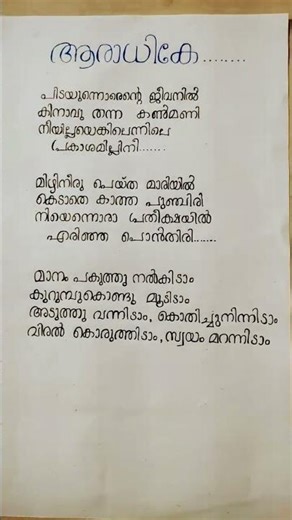 ആരാധികേ........
പിടയുന്നൊരെന്റെ ജീവനിൽ
കിനാവു തന്ന കൺമണി
നീയില്ലയെങ്കിലെന്നിലെ
പ്രകാശമില്ലിനീ.......
മിഴിനീരു പെയ്ത മാരിയിൽ
കെടാതെ കാത്ത പുഞ്ചിരി
നിയെന്നൊരാ പ്രതീക്ഷയിൽ
എരിഞ്ഞ പൊൻതിരി.......
മാനം പകുത്തു നൽകിടാം
കുറുമ്പുകൊണ്ടു മൂടിടാം
അടുത്തു വന്നിടാം, കൊതിച്ചുനിന്നിടാം
വിരൽ കൊരുത്തിടാം, സ്വയം മറന്നിടാം